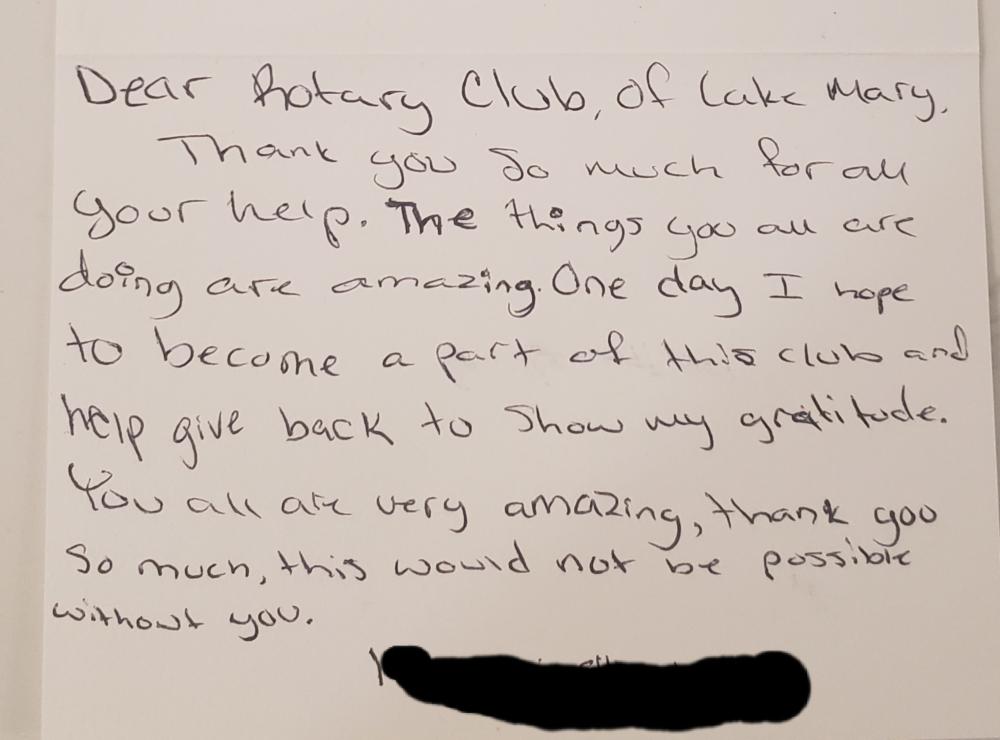 Dear Rotary Club, of Lake Mary,
Thank you so much for all
your help. The things you all are
doing are amazing. One day I hope
to become a part of this club and
help give back to show my gratitude.
You all are very amazing, thank you
so much, this would not be possible
without you.